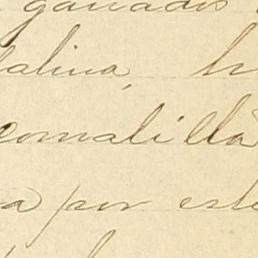 ganados
alina, h
comalilla
a por este